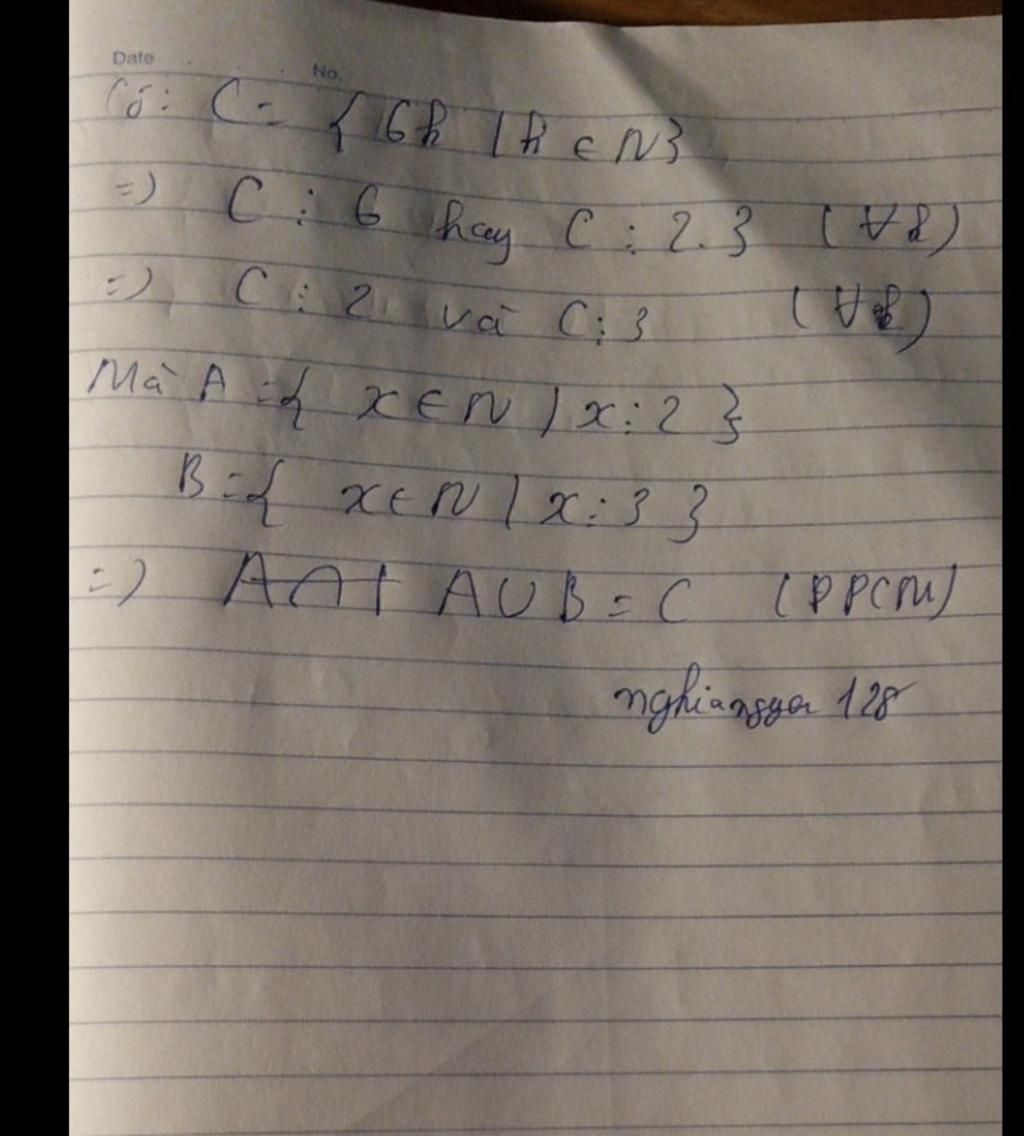 Date
No.
Có: C = { 6k | k ∈ N}
=) C ⋮ 6 hay C ⋮ 2.3 (∀k)
=) C ⋮ 2 và C ⋮ 3 (∀k)
Mà A = { x ∈ N | x ⋮ 2 }
B = { x ∈ N | x ⋮ 3 }
=) A ∩ A ∪ B = C (ĐPCM)
128